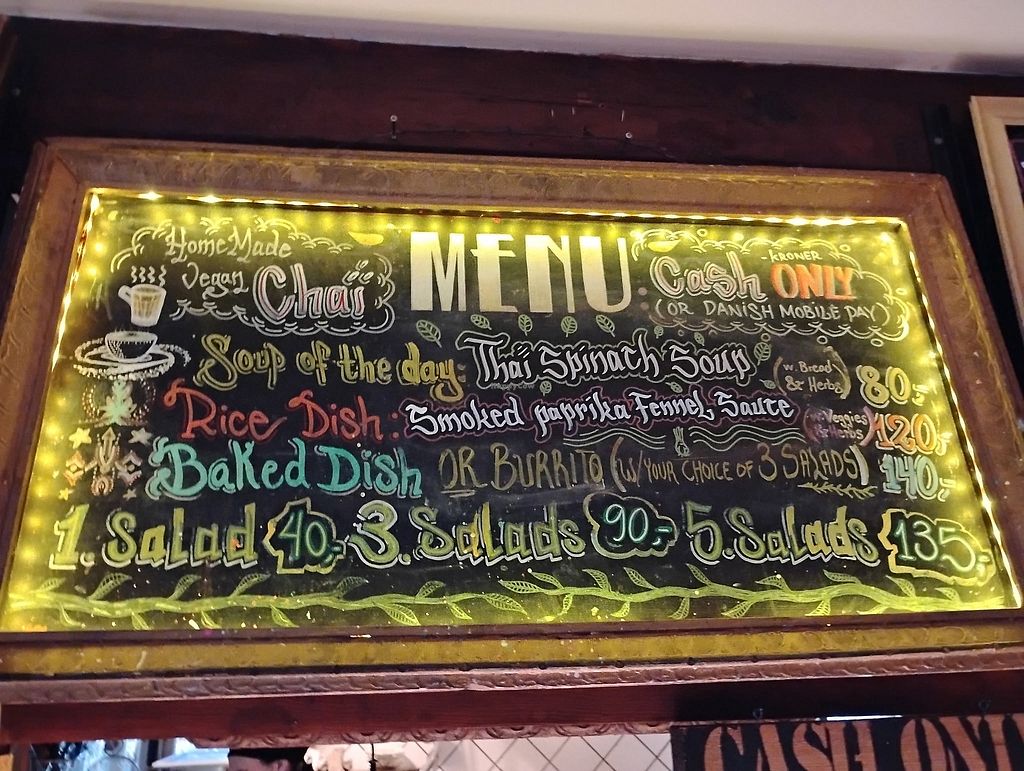 HomeMade
Vegan Chai
MENU:
Cash - KRONER ONLY
(OR DANISH MOBILE PAY)
Soup of the day: Thai Spinach Soup (w. Bread & Herbs) 80,-
Rice Dish: Smoked paprika Fennel Sauce Veggies 120,-
Baked Dish OR BURRITO (W/YOUR CHOICE OF 3 SALADS) 140,-
1. Salad 40,- 3. Salads 90,- 5. Salads 135,-
CASH ON